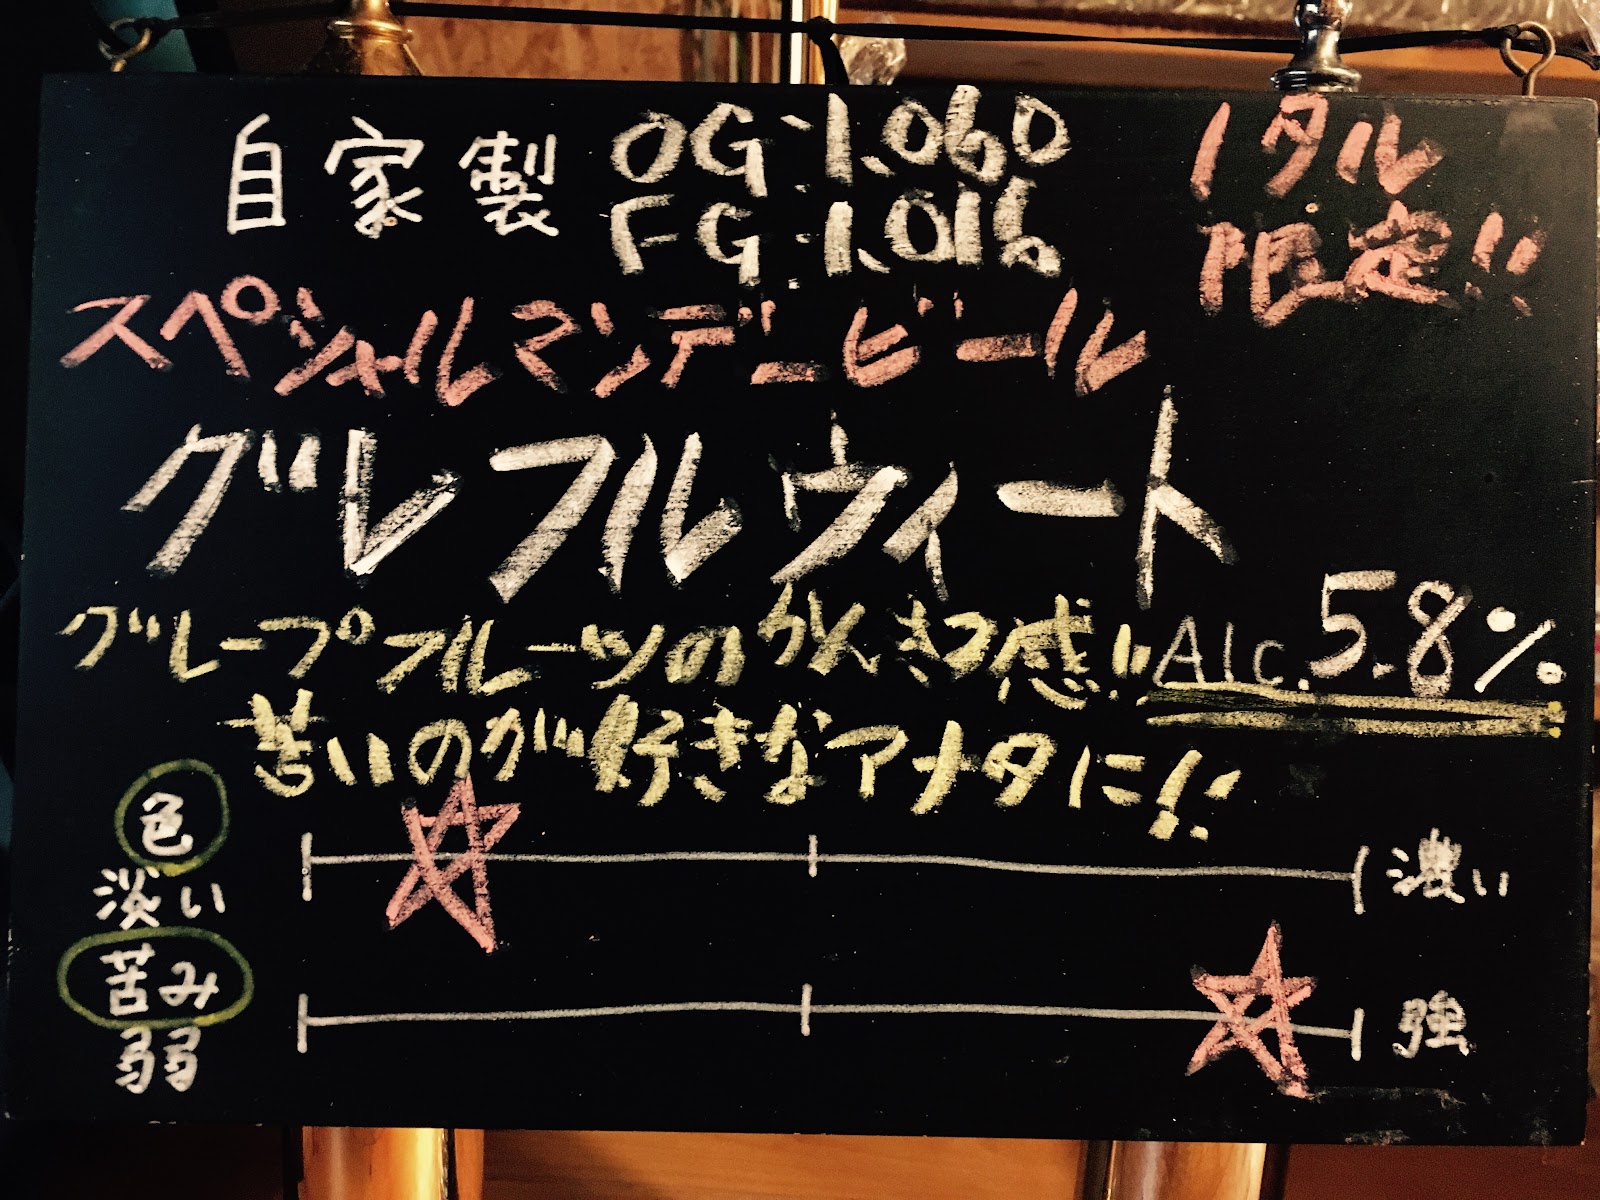 自家製
OG:1.060
FG:1.016
1タル
限定!!
スペシャルマンデービール
グレフルウィート
グレープフルーツのうんきつ感!!
Alc.5.8%
苦いのが好きなアナタに!!
色
淡い
濃い
苦み
弱
強